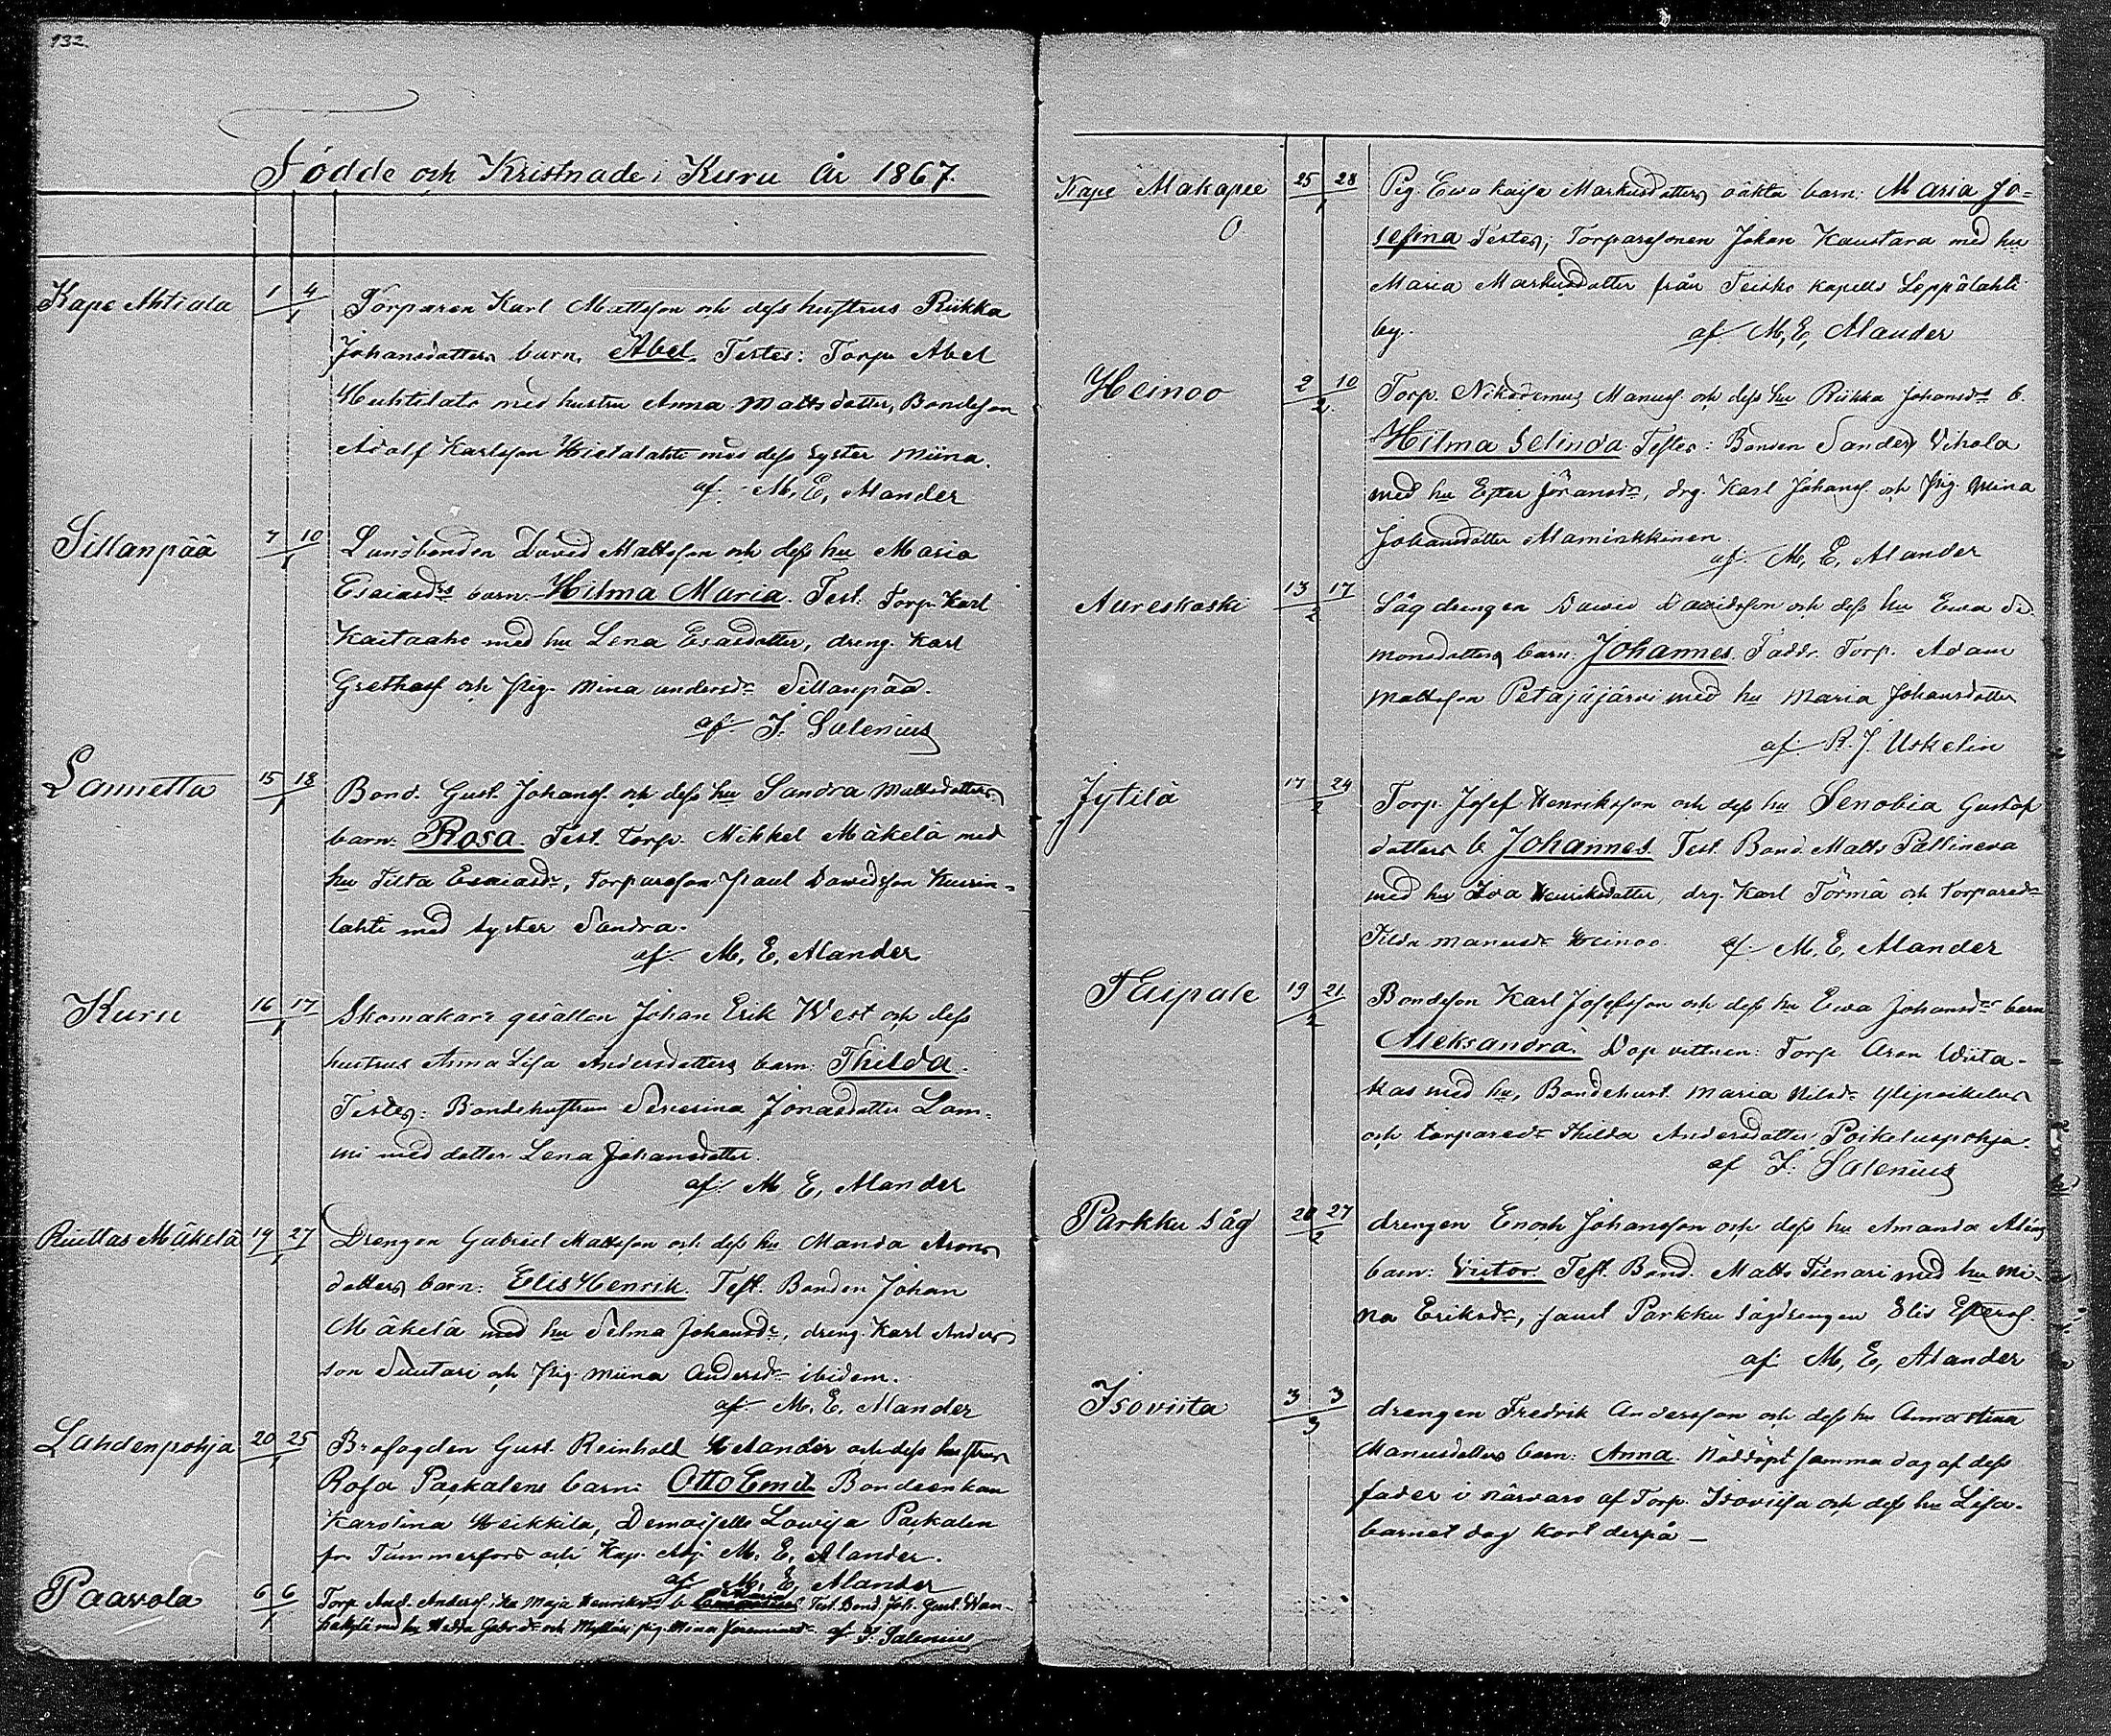 132.
Födde och Kristnade i Kuru År 1867.
Kape Ahtiala 1 4/1 Torparen Karl Mattsson och dess hustrus Riikka
Johansdotters barn, Abel. Testes: Torp. Abel
Huhtilato med hustru Anna Mattsdotter, Bondeson
Adolf Karlsson Hietalahti med dess syster Miina.
af. M. E. Alander
Sillanpää 7 10/1 Landbonden David Mattsson och dess hu Maria
Esaiasdrs barn. Hilma Maria. Test. Torp. Karl
Kaitaaho med hu Lena Esasdotter, dreng. Karl
och pig. Mina Andersdr Sillanpää.
af. J. Salenius
Lannetta 15 18/1 Bond. Gust. Johanss. och dess hu Sandra Mattsdotters
barn: Rosa. Test. torp. Mikkel Mäkelä med
hu Tilta Esaiasdr, torpareson Paul Davidsson
lahti med syster Sandra.
af. M. E. Alander
Kuru 16 17/1 Skomakare gesällen Johan Erik West och dess
hustrus Anna Lisa Andersdotters barn: Thilda.
Testes: Bondehustrun Severina Jonasdotter Lam-
mi med dotter Lena Johansdotter.
af. M. E. Alander
Riuttas Mäkelä 19 27/1 Drengen Gabriel Mattsson och dess hu Manda Arons
dotters barn: Elis Henrik. Test. Bonden Johan
Mäkelä med hu Selma Johansdr, dreng. Karl Anders
son Suutari och pig. Miina Andersdr ibidem.
af. M. E. Alander
Lahdenpohja 20 25/1 Brofogden Gust. Reinhold Helander och dess hustrus
Rosa Paskalens barn: Otto Emil. Bondeenkan
Karolina Heikkilä, Demoiselle Lovisa Paskalen
fr. Tammerfors och Kap. Adj. M. E. Alander.
af M. E. Alander
Paavola 6 6/1 Torp. And. Anderss. hu Maja Henriksdr b. Test. Bond. Joh. Gust. Wan-
med hu Hedda och pig. Mina af J. Salenius
Kape Makapee 25 28/1 Pig. Ewa Kaisa Markusdotters oäkta barn: Maria Jo-
0 sefina Testes; Torparesonen Johan Kaustara med hu
Maria Markusdotter från Teisko kapells Leppälahti
by. af. M. E. Alander
Heinoo 2 10/2 Torp. Nikodemus Manuss. och dess hu Riikka Johansdr b.
Hilma Selinda Testes: Bonden Sanders Vihola
med hu Ester Jöransdr, drg. Karl Johanss. och Pig. Mina
Johansdotter Maminkkinen.
af. M. E. Alander
Aureskoski 13 17/2 Såg drengen David Davidsson och dess hu Ewa Si
monsdotters barn. Johannes. Faddr. Torp. Adam
Mattsson Petäjäjärvi med hu Maria Johansdotter
af. R. J. Uskelin
Jytilä 17 24/2 Torp. Josef Henriksson och dess hu Senobia Gustaf
dotters b Johannes. Test. Bond. Matts Pallineva
med hu Iva Henriksdotter, drg. Karl Törmä och torparedr
Tilda Manusdr Heinoo. af. M. E. Alander
Taipale 19 21/2 Bondeson Karl Josefsson och dess hu Ewa Johansdr barn
Aleksandra. Dop vittnen: Torp Aron Wiita-
kas med hu, Bondehust. Maria Nilsdr Ylipoikelus
och torparedr Thilda Andersdotter Poikeluspohja.
af J. Salenius
Parkku såg 20 27/2 drengen Enoch Johansson och dess hu Amanda
barn: Victor. Test. Bond. Matts Tienari med hu Mi-
na Eriksdr, samt Parkku sågdrengen Elis Esterss.
af. M. E. Alander
Isoviita 3 3/3 drengen Fredrik Andersson och dess hu Anna Stina
Manusdotters barn: Anna. Nöddöpt samma dag af dess
fader i närvaro af Torp. Isoviita och dess hu Lisa.
barnet dog kort derpå –